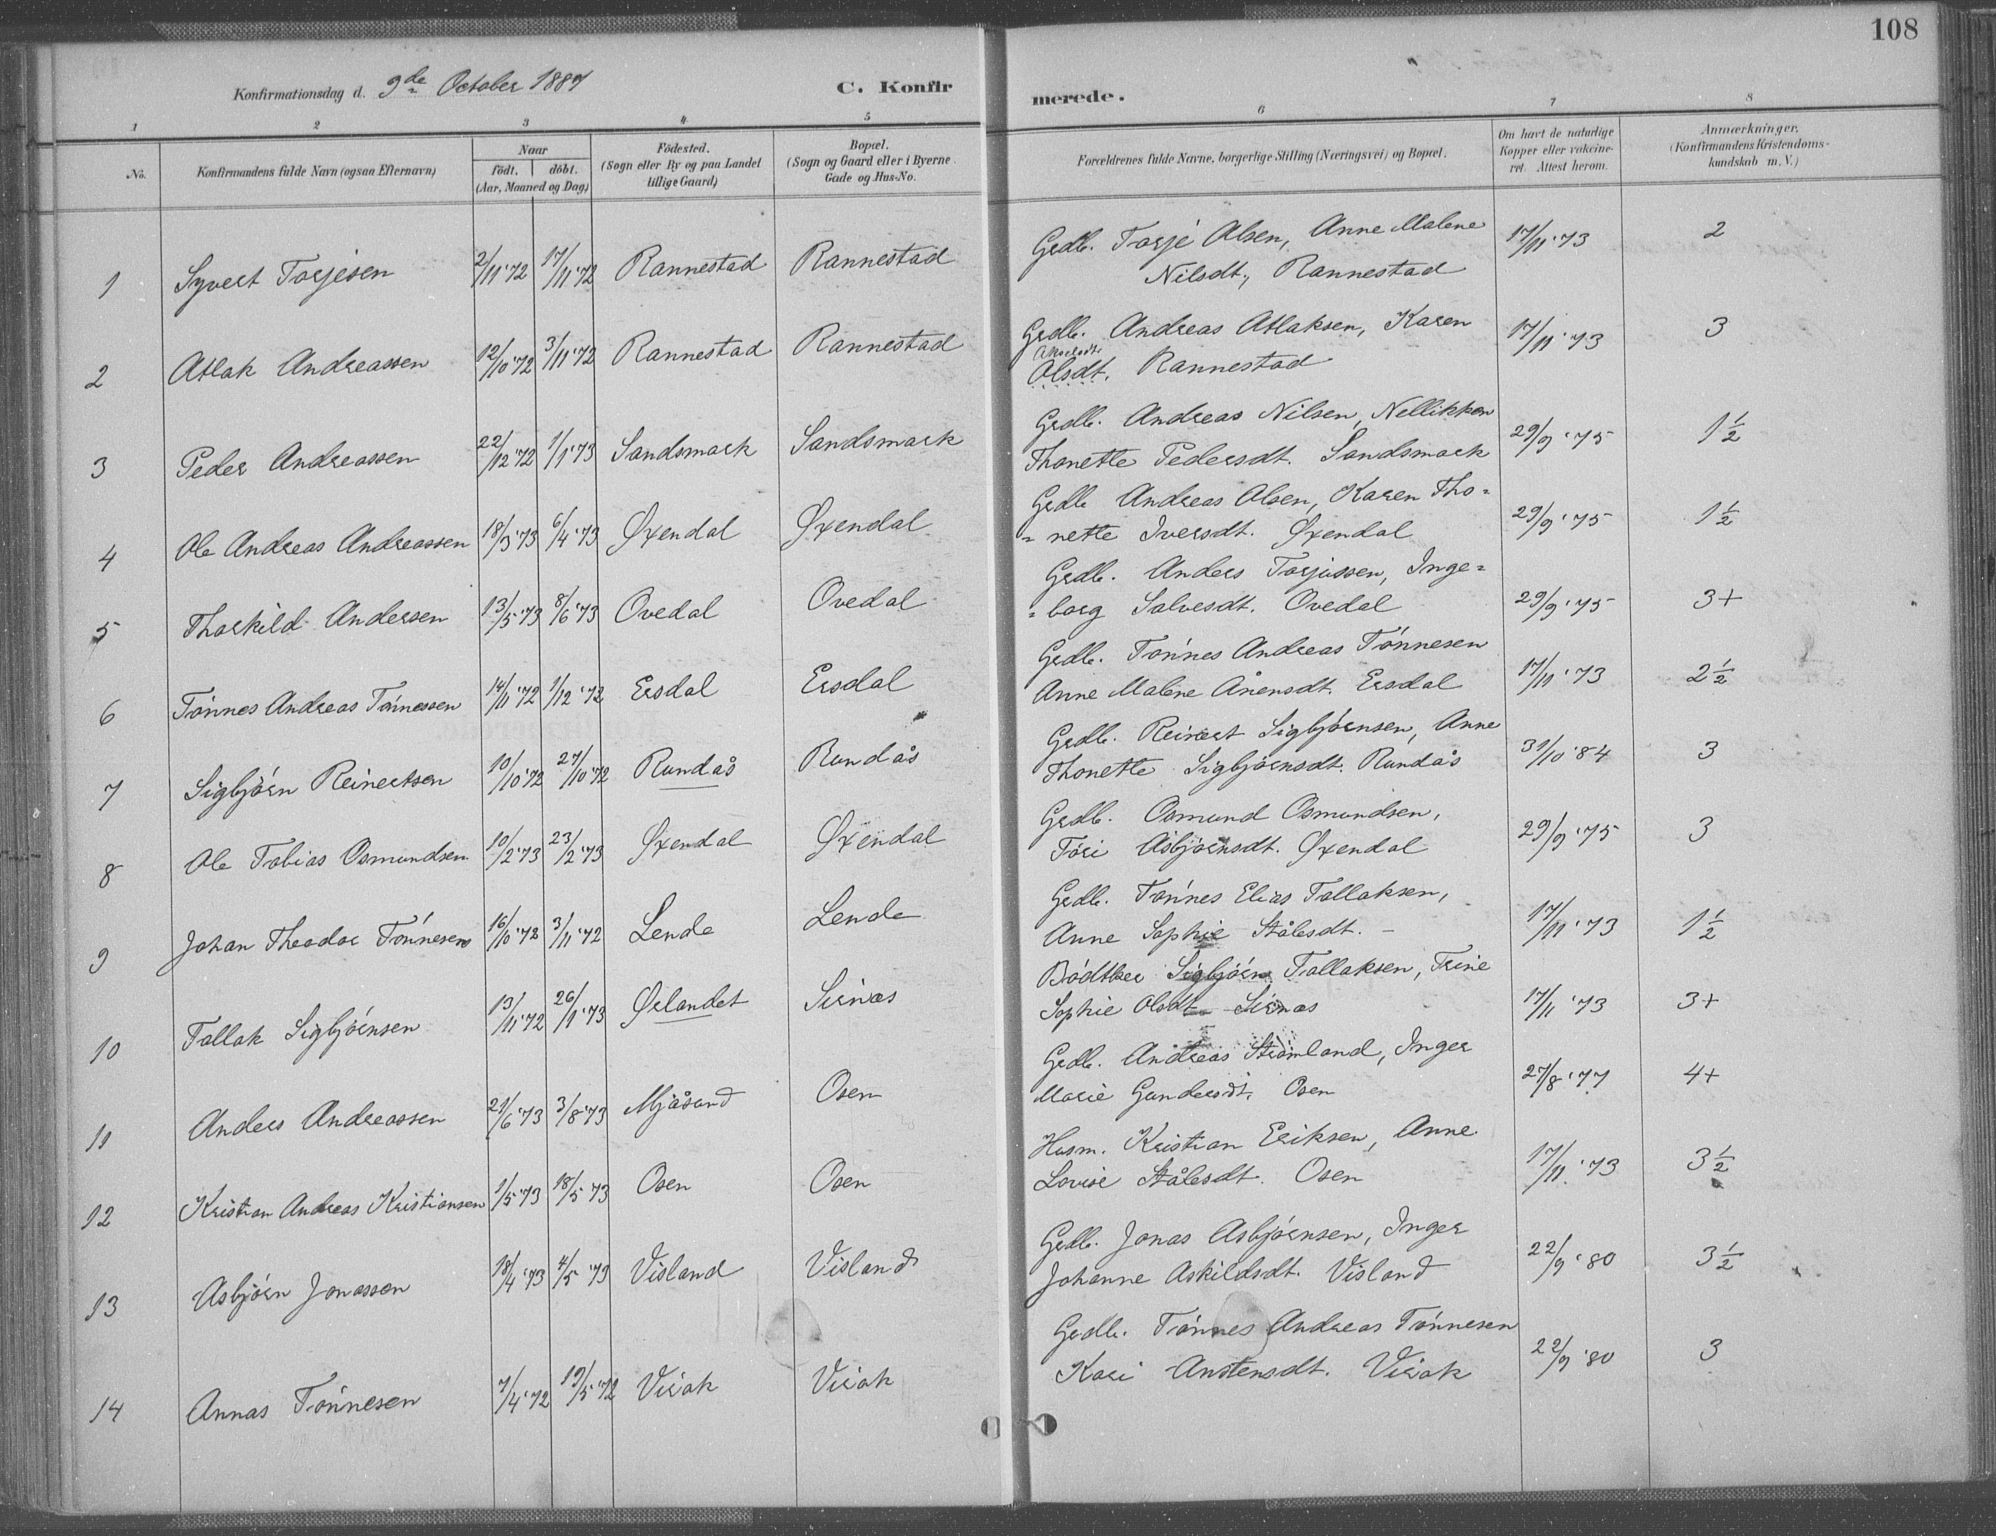 108
Konfirmationsdag d. 9de October 1887
C. Konfir
merede.
1 2 3 4 5 6 7 8
No.
Konfirmandens fulde Navn (ogsaa Efternavn)
Naar
födt. döbt.
(Aar, Maaned og Dag)
Födested.
(Sogn eller By og paa Landet
tillige Gaard)
Bopæl.
(Sogn og Gaard eller i Byerne
Gade og Hus-No.
Forældrenes fulde Navne, borgerlige Stilling (Næringsvei) og Bopæl.
Om havt de naturlige
Kopper eller vakcine-
ret. Attest herom.
Anmærkninger.
(Konfirmandens Kristendoms-
kundskab m. V.)
1 Syvert Torjesen 2/11 '72 17/11 '72 Rannestad Rannestad Grdb. Torjé Olsen, Anne Malene 17/11 '73 2
Nilsdt., Rannestad
2 Atlak Andreassen 12/10 '72 3/11 '72 Rannestad Rannestad Grdb. Andreas Atlaksen, Karen 17/11 '73 3
Akselsdt.
Olsdt. Rannestad
3 Peder Andreassen 22/12 '72 1/1 '73 Sandsmark Sandsmark Grdb. Andreas Nilsen, Nellikken 29/9 '75 1 1/2
Thonette Pedersdt. Sandsmark
4 Ole Andreas Andreassen 18/3 '73 6/4 '73 Øxendal Øxendal Grdb Andreas Olsen, Karen Tho= 29/9 '75 1 1/2
=nette Iversdt. Øxendal
5 Thorkild Andersen 13/5 '73 8/6 '73 Ovedal Ovedal Grdb. Anders Torjussen, Inge= 29/9 '75 3+
=borg Salvesdt. Ovedal
6 Tónnes Andreas Tónnessen 14/11 '72 1/12 '72 Ersdal Ersdal Grdb. Tónnes Andreas Tónnesen 17/11 '73 2 1/2
Anne Malene Ånensdt. Ersdal
7 Sigbjórn Reinertsen 10/10 '72 27/10 '72 Rundås Rundås Grdb. Reinert Sigbjórnsen, Anne 31/10 '84 3
Thonette Sigbjórnsdt. Rundås
8 Ole Tobias Osmundsen 10/2 '73 23/2 '73 Øxendal Øxendal Grdb. Osmund Osmundsen, 29/9 '75 3
Tóri Asbjórnsdt. Øxendal
9 Johan Theodor Tónnesen 16/10 '72 3/11 '72 Lende Lende Grdb. Tónnes Elias Tallaksen, 17/11 '73 1 1/2
Anne Sophie Stålesdt. –
10 Tallak Sigbjórnsen 13/11 '72 26/1 '73 Ørlandet Sirnæs Bódtker Sigbjórn Tallaksen, Trine 17/11 '73 3+
Sophie Olsdt Sirnæs
11 Anders Andreassen 21/6 '73 3/8 '73 Mjåsund Osen Grdb. Andreas Strømland, Inger 27/8 '77 4+
Marie Gundersdt. Osen
12 Kristian Andreas Kristiansen 1/5 '73 18/5 '73 Osen Osen Husm. Kristian Eriksen, Anne 17/11 '73 3 1/2
Lovise Stålesdt. Osen
13 Asbjórn Jonassen 18/4 '73 4/5 '73 Visland Visland Grdb. Jonas Asbjórnsen, Inger 22/9 '80 3 1/2
Johanne Askildsdt. Visland
14 Annas Tónnesen 7/4 '72 19/5 '72 Virak Virak Grdb. Tónnes Andreas Tónnesen 22/9 '80 3
Kari Anstensdt. Virak